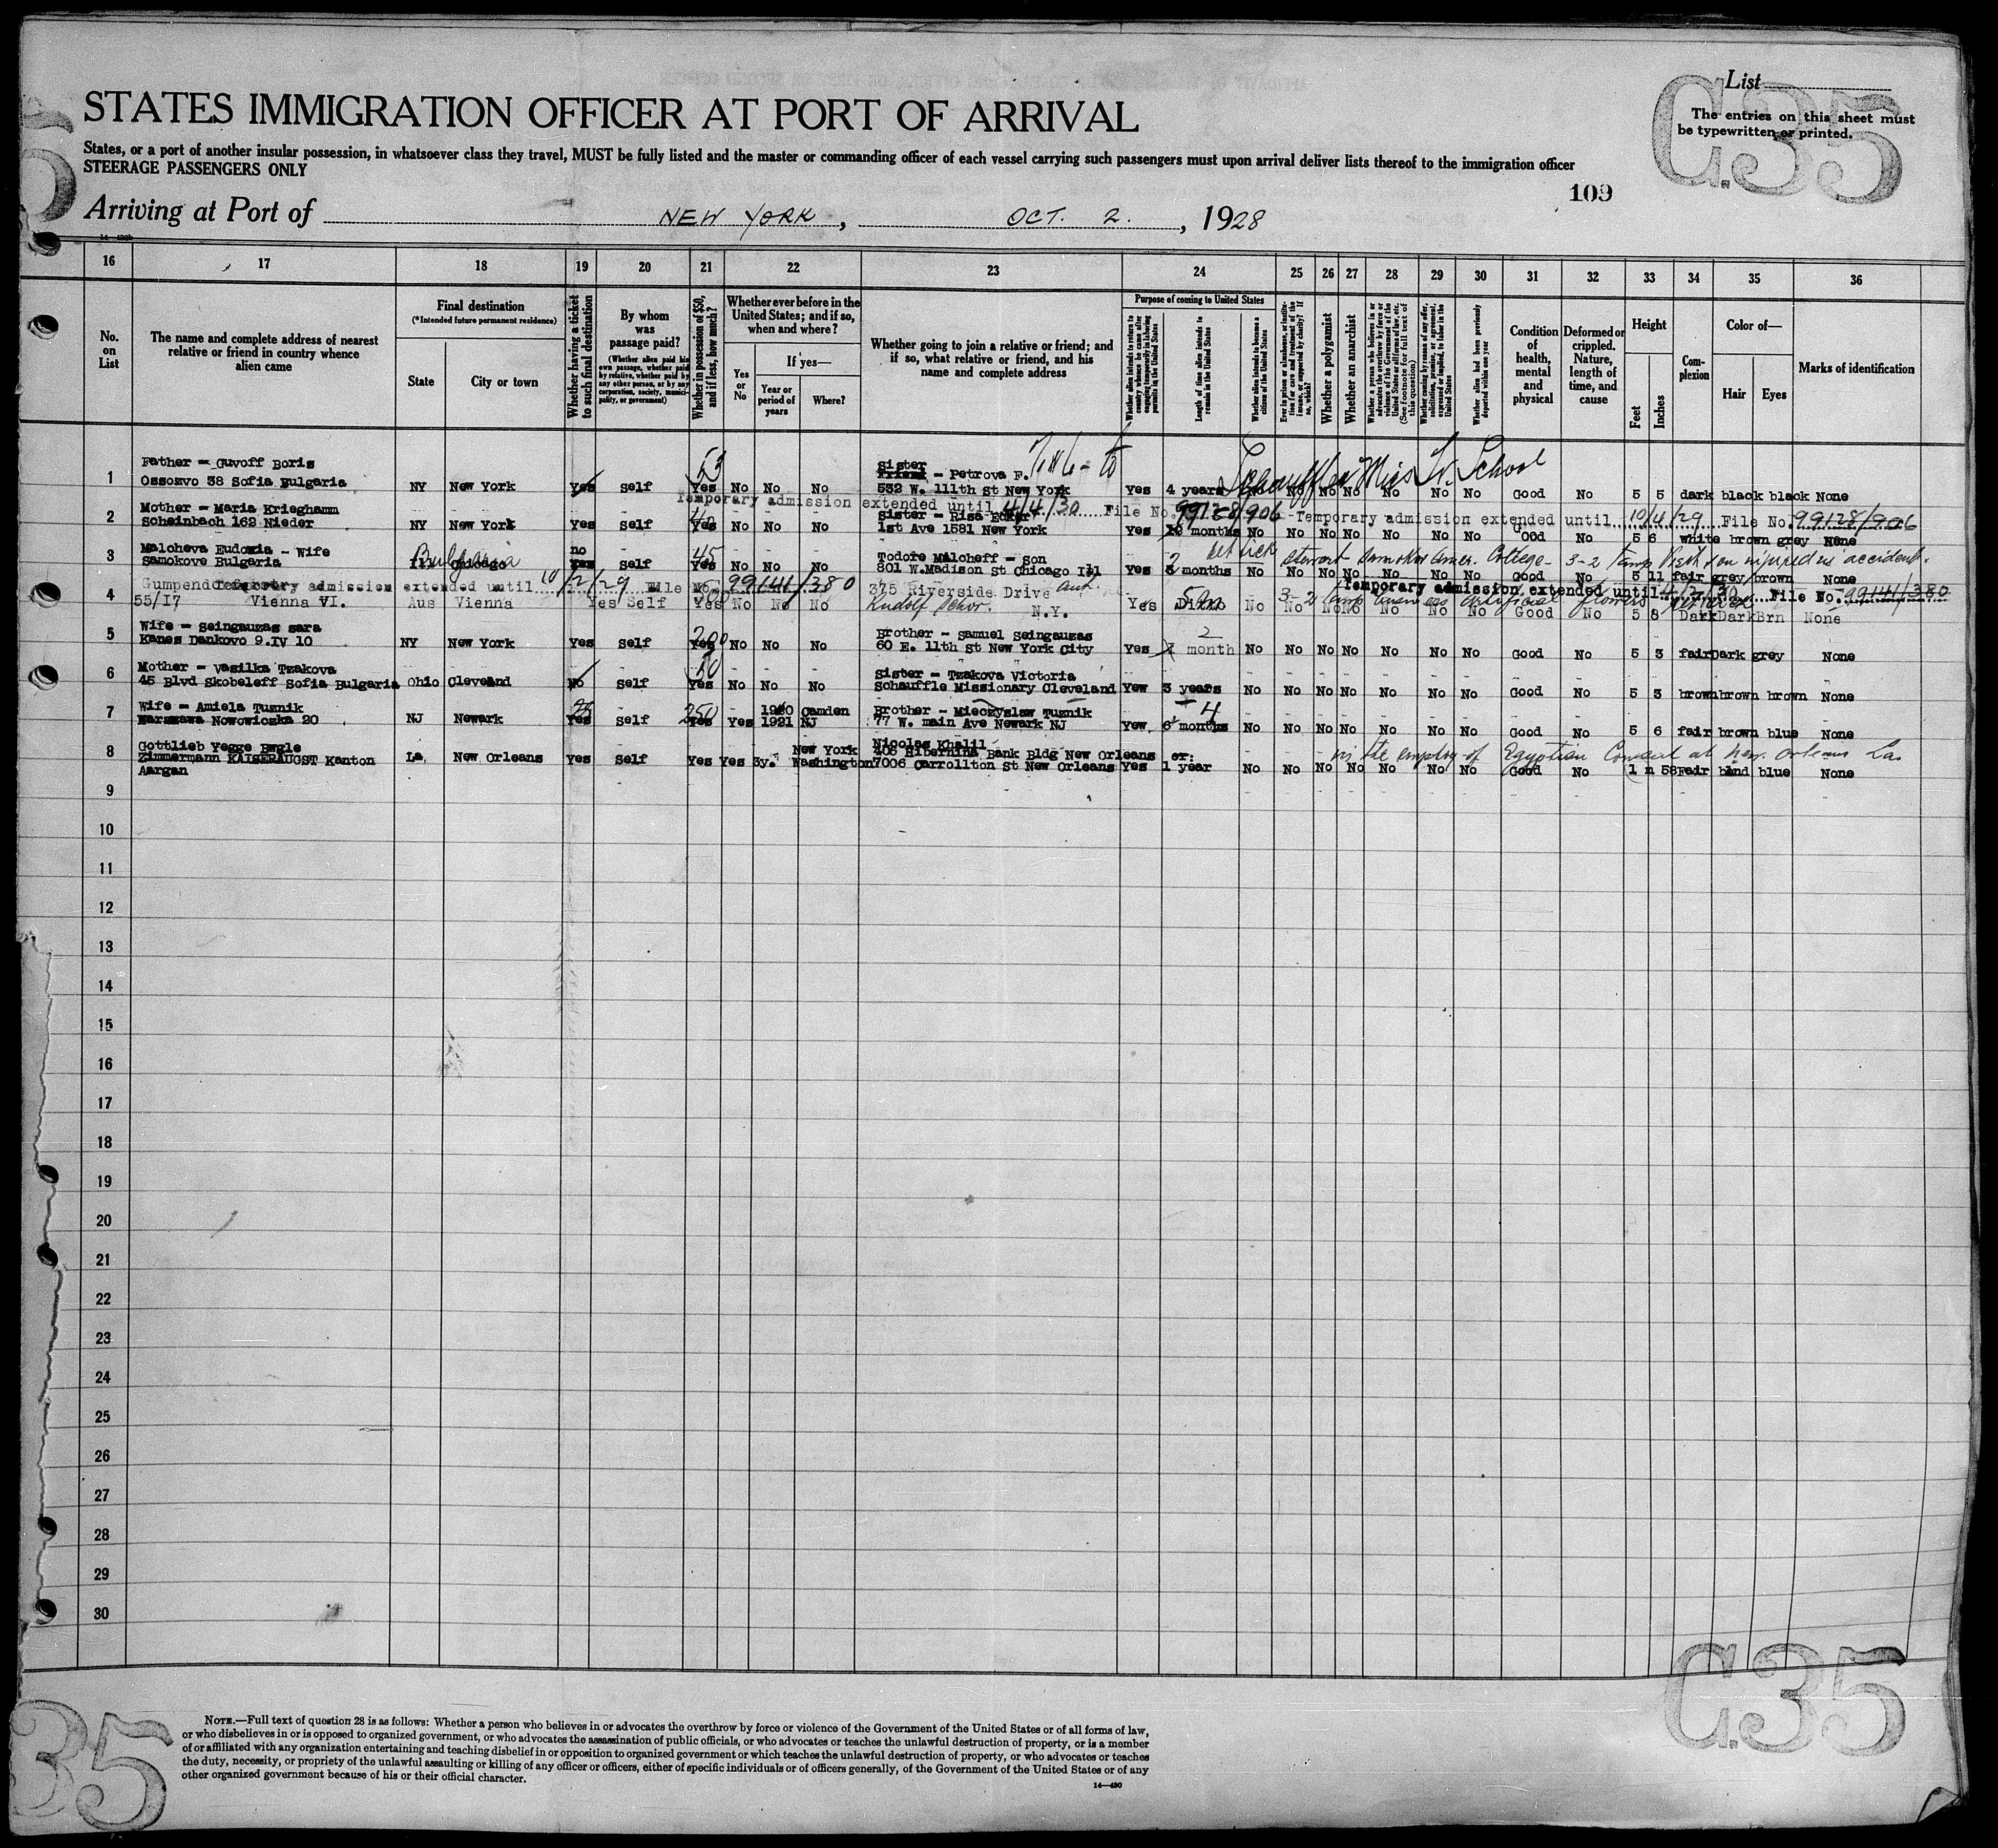 List
C.35
The entries on this sheet must
be typewritten or printed.
STATES IMMIGRATION OFFICER AT PORT OF ARRIVAL
States, or a port of another insular possession, in whatsoever class they travel, MUST be fully listed and the master or commanding officer of each vessel carrying such passengers must upon arrival deliver lists thereof to the immigration officer
STEERAGE PASSENGERS ONLY
109
Arriving at Port of NEW YORK, OCT. 2., 1928
16 17 18 19 20 21 22 23 24 25 26 27 28 29 30 31 32 33 34 35 36
No. on List
The name and complete address of nearest relative or friend in country whence alien came
Final destination
(*Intended future permanent residence)
State
City or town
Whether having a ticket to such final destination
By whom was passage paid?
(Whether alien paid his own passage, whether paid by relative, whether paid by any other person, or by any corporation, society, municipality, or government)
Whether in possession of $50, and if less, how much?
Whether ever before in the United States; and if so, when and where?
Yes or No
If yes—
Year or period of years
Where?
Whether going to join a relative or friend; and if so, what relative or friend, and his name and complete address
Purpose of coming to United States
Length of time alien intends to remain in the United States
Whether alien intends to become a citizen of the United States
Whether a polygamist
Whether an anarchist
(See footnote for full text of this question)
Whether alien had been previously deported within one year
Condition of health, mental and physical
Deformed or crippled. Nature, length of time, and cause
Height
Feet
Inches
Complexion
Color of—
Hair
Eyes
Marks of identification
Schauffler Miss Tr. School
1 Father - Guvoff Boris sister Friend - Petrova F.
Ossozvo 38 Sofia Bulgaria NY New York Yes Self 53 Yes No No No 532 W. 111th St New York Yes 4 years No No No No No No No Good No 5 5 dark black black None
Temporary admission extended until 4/4/30 File No. 99128/906 Temporary admission extended until 10/4/29 File No. 99128/906
2 Mother - Maria Krieghamm Sister - Risa Ecker
Scheinbach 162 Nieder NY New York Yes Self Yes No No No 1st Ave 1581 New York Yes months No No No No No No No Good No 5 6 white brown grey None
3 Malcheva Eudoxia - Wife Bulgaria no 45 Todore Malcheff - son
Samokove Bulgaria Ill Chicago Yes Self Yes No No No 801 W.Madison St Chicago Ill Yes 3 months No No No No No No No Good No 5 11 fair grey brown None
Temporary admission extended until 10/2/29 File No. 99141/380 375 Riverside Drive aunt Temporary admission extended until File No. 99141/380
4 55/17 Vienna VI. Aus Vienna Yes Self Yes No No No Rudolf Schor. N.Y. Yes Ditto No No No No No No No Good No 5 6 Dark Dark Brn None
5 Wife - Seingauzas Sara 200 Brother - Samuel Seingauzas 2
Kanes Dankovo 9.IV 10 NY New York Yes Self Yes No No No 60 E. 11th St New York City Yes month No No No No No No No Good No 5 3 fair Dark grey None
6 Mother - Vasilka Tzakova 50 Sister - Tzakova Victoria
45 Blvd Skobeleff Sofia Bulgaria Ohio Cleveland No Self Yes No No No Schauffle Missionary Cleveland Yew 3 years No No No No No No No Good No 5 3 brown brown brown None
7 Wife - Amiela Tuznik 250 1920 Camden Brother - Mieczyslaw Tuznik 4
Warszawa Nowowiozka 20 NJ Newark Yes Self Yes Yes 1921 NJ 77 W. main Ave Newark NJ Yew 6 months No No No No No No No Good No 5 6 fair brown blue None
8 Gottlieb Yegge Bugle New York Nicolas Khalil 408 Hibernina Bank Bldg New Orleans or: in the employ of Egyptian Consul at New Orleans La
Zimmermann KAISERAUGST Kanton La New Orleans Yes Self Yes Yes 3y. Washington 7006 Carrollton St New Orleans Yes 1 year No No No No No No No Good No 1 m 58 Fair blnd blue None
Aargan
9
10
11
12
13
14
15
16
17
18
19
20
21
22
23
24
25
26
27
28
29
30
C.35
35
NOTE.—Full text of question 28 is as follows: Whether a person who believes in or advocates the overthrow by force or violence of the Government of the United States or of all forms of law,
or who disbelieves in or is opposed to organized government, or who advocates the assassination of public officials, or who advocates or teaches the unlawful destruction of property, or is a member
of or affiliated with any organization entertaining and teaching disbelief in or opposition to organized government or which teaches the unlawful destruction of property, or who advocates or teaches
the duty, necessity, or propriety of the unlawful assaulting or killing of any officer or officers, either of specific individuals or of officers generally, of the Government of the United States or of any
other organized government because of his or their official character.
14—430